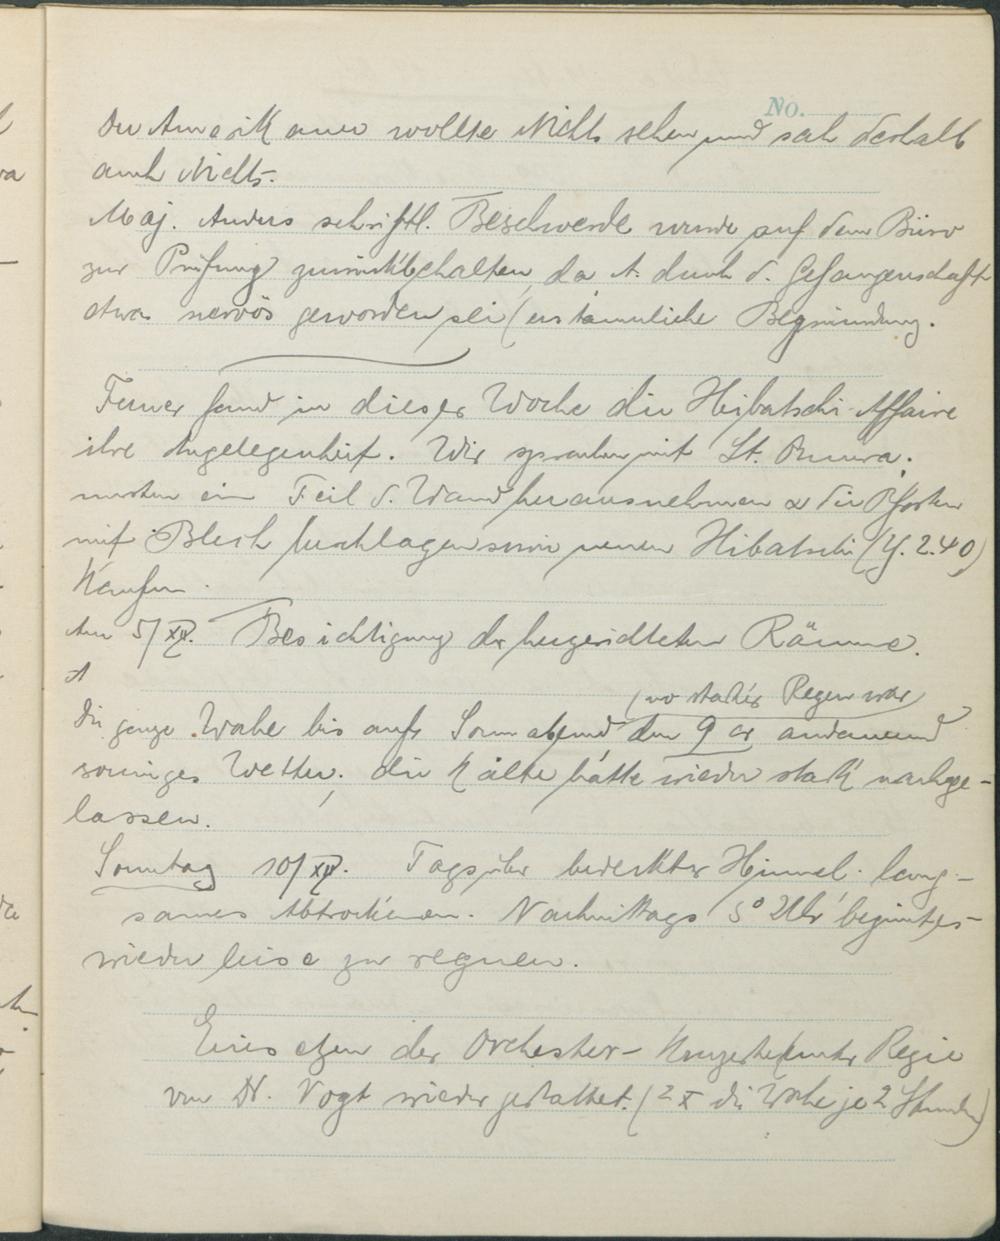 No.
Der Amerikaner wollte Nichts sehen und sah deshalb
auch Nichts.
Maj. Anders schriftl. Beschwerde wurde auf dem Büro
zur Prüfung zurückbehalten, da A. durch d. Gefangenschaft
etwas nervös geworden sei (erstaunliche Begründung.
Ferner fand in dieser Woche die Hibatschi-Affaire
ihre Angelegenheit. Wir sprachen mit Lt.
mussten ein Teil d. Wand herausnehmen & die Pfosten
mit Blech beschlagen sowie neuen Hibatschi (Y. 2.40)
Kaufen.
Am 5/XII. Besichtigung der hergerichteten Räume.
A
(wo starker Regen war)
Die ganze Woche bis auf Sonnabend den 9 er andauernd
sonniges Wetter. die Kälte hatte wieder stark nachge-
lassen.
Sonntag 10/XII. Tagsüber bedeckter Himmel. lang-
sames Abtrocknen. Nachmittags 5° Uhr beginnt es
wieder leise zu regnen.
Einsetzen der Orchester-Konzerte (unter Regie
von Dr. Vogt wieder gestattet. (2 x die Woche je 2 Stunden)